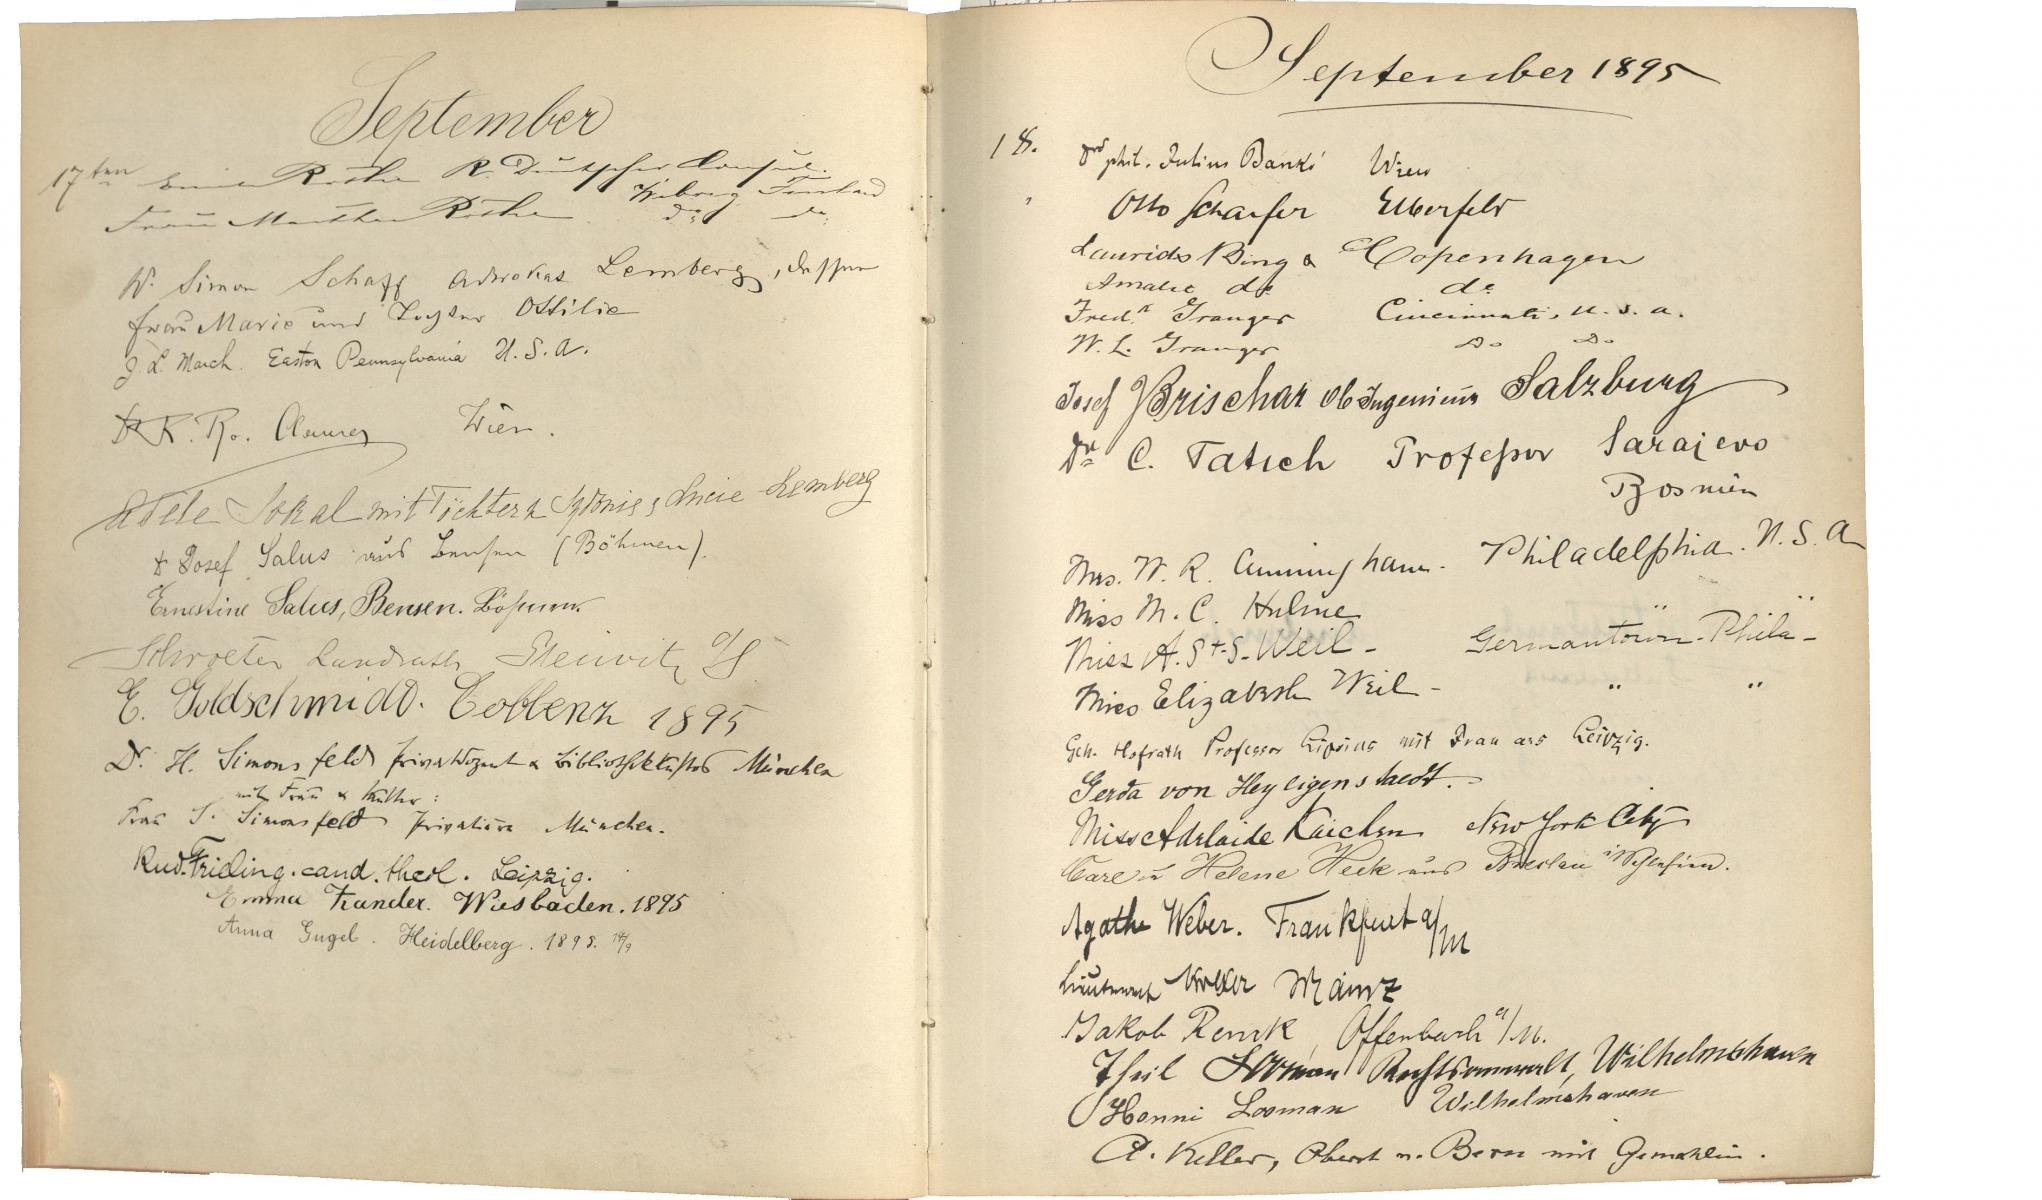 September
17ten Rothe K. Deutscher Consul.
Wiborg Finnland
Frau Martha Rothe do do
Dr. Simon Schaff Advokat Lemberg, dessen
Frau Marie und Tochter Ottilie
J. L. March. Easton Pennsylvania U.S.A.
Dr K. Ro. Wien.
Adele Sokal mit Töchtern Sydonie & Lucie Lemberg
Dr Josef Salus aus Bensen (Böhmen).
Ernestine Salus, Bensen. Böhmen.
Schroeter Landrath Gleiwitz O/S
E. Goldschmidt. Coblenz 1895
Dr. H. Simonsfeld Privatdozent & Bibliothekkustos München
mit Frau & Mutter:
Frau S. Simonsfeld Privatiere München.
Rud. Frieling. cand. theol. Leipzig.
Emma Wiesbaden. 1895
Anna Gugel. Heidelberg. 1895.
September 1895
18. Dr phil. Julius Banki Wien
Otto Schaefer Elberfeld
Laurids Bing & Copenhagen
Amalie do do
Fredk Granger Cincinnati, U.S.A.
W. L. Granger Do Do
Josef Brischar ObIngenieur Salzburg
Dr C. Tatsch Professor Sarajevo
Bosnien
Mrs. W. R. Cunningham. Philadelphia. U.S.A
Miss M. C. Hulme " "
Miss A. St. S. Weil - Germantown - Phila -
Miss Elizabeth Weil - " "
Geh. Hofrath Professor Lipsius mit Frau aus Leipzig.
Gerda von Heyligenstaedt.
Miss Adelaide Kaichen New York City
Carl u Helene Heck aus Breslau i/Schlesien.
Agathe Weber. Frankfurt a/M
Lieutenant Mainz
Jakob Renk, Offenbach a/M.
Theil Rechtsanwalt, Wilhelmshaven
Henni Looman Wilhelmshaven
A. Keller, Oberst v. Bern mit Gemahlin.